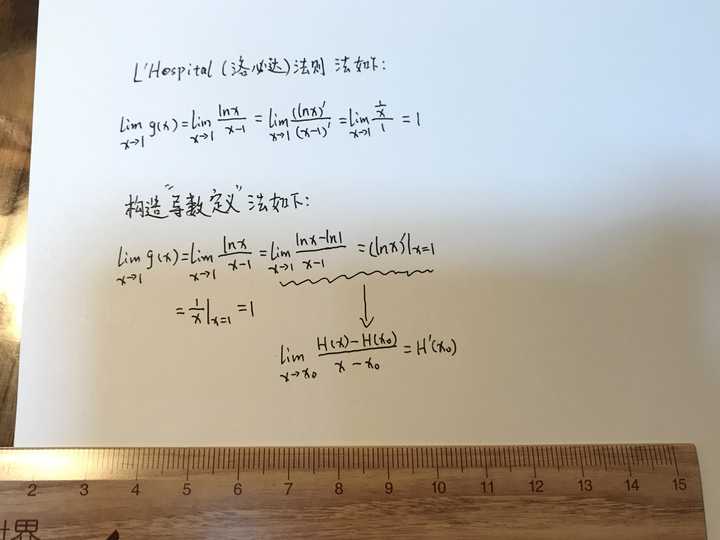 L'Hospital (洛必达) 法则 法如下:
lim x→1 g(x) = lim x→1 lnx/x-1 = lim x→1 (lnx)'/(x-1)' = lim x→1 1/x/1 = 1
构造"导数定义"法如下:
lim x→1 g(x) = lim x→1 lnx/x-1 = lim x→1 lnx-ln1/x-1 = (lnx)'|x=1
= 1/x|x=1 = 1
lim x→x₀ H(x)-H(x₀)/x-x₀ = H'(x₀)
2 3 4 5 6 7 8 9 10 11 12 13 14 15
界